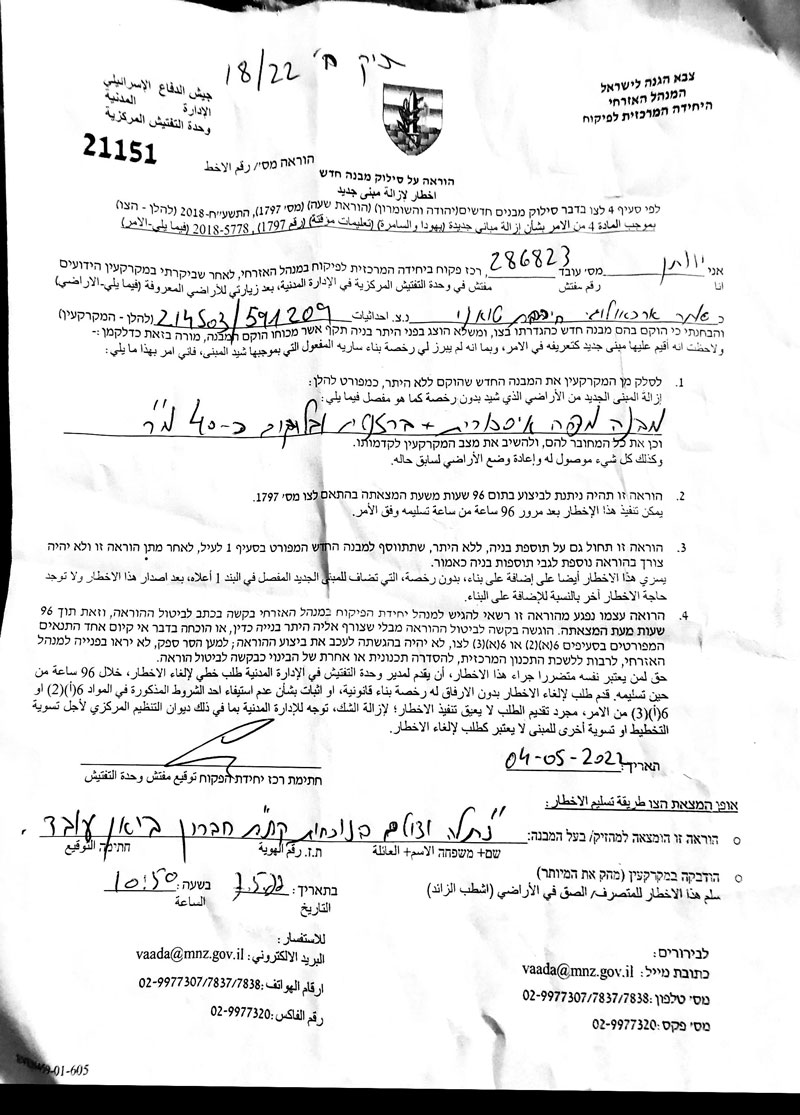 תיק ח' 18/22
צבא הגנה לישראל
המנהל האזרחי
היחידה המרכזית לפיקוח
جيش الدفاع الإسرائيلي
الإدارة المدنية
وحدة التفتيش المركزية
21151
הוראה מס'/ رقم الاخط
הוראה על סילוק מבנה חדש
اخطار لإزالة مبنى جديد
לפי סעיף 4 לצו בדבר סילוק מבנים חדשים(יהודה והשומרון) (הוראת שעה) (מס' 1797), התשע"ח-2018 (להלן - הצו)
بموجب المادة 4 من الامر بشأن إزالة مباني جديدة (يهودا والسامرة) (تعليمات مؤقتة) (رقم 1797), 5778-2018 (فيما يلي-الامر)
אני יונתן מס' עובד 286823, רכז פקוח ביחידה המרכזית לפיקוח במנהל האזרחי, לאחר שביקרתי במקרקעין הידועים
انا رقم مفتش مفتش في وحدة التفتيش المركزية في الإدارة المدنية، بعد زيارتي للأراضي المعروفة (فيما يلي-الاراضي)
כאתר ארכאולוגי חירבת טואני נ.צ. احداثيات 214503/591209 (להלן - המקרקעין)
והבחנתי כי הוקם בהם מבנה חדש כהגדרתו בצו, ומשלא הוצג בפני היתר בניה תקף אשר מכוחו הוקם המבנה, מורה בזאת כדלקמן:-
ولاحظت انه أقيم عليها مبنى جديد كتعريفه في الامر، وبما انه لم يبرز لي رخصة بناء سارية المفعول التي بموجبها شيد المبنى، فاني امر بهذا ما يلي:
1. לסלק מן המקרקעין את המבנה החדש שהוקם ללא היתר, כמפורט להלן:
إزالة المبنى الجديد من الأراضي الذي شيد بدون رخصة كما هو مفصل فيما يلي:
מבנה מפח איסכורית + ברזלים ובלוקים כ-40 מ"ר
וכן את כל המחובר להם, ולהשיב את מצב המקרקעין לקדמותו.
وكذلك كل شيء موصول له وإعادة وضع الأراضي لسابق حاله.
2. הוראה זו תהיה ניתנת לביצוע בתום 96 שעות משעת המצאתה בהתאם לצו מס' 1797.
يمكن تنفيذ هذا الإخطار بعد مرور 96 ساعة من ساعة تسليمه وفق الأمر.
3. הוראה זו תחול גם על תוספת בניה, ללא היתר, שתתווסף למבנה החדש המפורט בסעיף 1 לעיל, לאחר מתן הוראה זו ולא יהיה
צורך בהוראה נוספת לגבי תוספות בניה כאמור.
يسري هذا الاخطار أيضا على إضافة على بناء، بدون رخصة، التي تضاف للمبنى الجديد المفصل في البند 1 أعلاه، بعد اصدار هذا الاخطار ولا توجد
حاجة الاخطار آخر بالنسبة للإضافة على البناء.
4. הרואה עצמו נפגע מהוראה זו רשאי להגיש למנהל יחידת הפיקוח במנהל האזרחי בקשה בכתב לביטול ההוראה, וזאת תוך 96
שעות מעת המצאתה. הוגשה בקשה לביטול ההוראה מבלי שצורף אליה היתר בנייה כדין, או הוכחה בדבר אי קיום אחד התנאים
המפורטים בסעיפים 6(א)(2) או 6(א)(3) לצו, לא יהיה בהגשתה לעכב את ביצוע ההוראה; למען הסר ספק, לא יראו בפנייה למנהל
האזרחי, לרבות ללשכת התכנון המרכזית, להסדרה תכנונית או אחרת של הבינוי כבקשה לביטול הוראה.
حق لمن يعتبر نفسه متضررا جراء هذا الاخطار، أن يقدم لمدير وحدة التفتيش في الإدارة المدنية طلب خطي لإلغاء الاخطار، خلال 96 ساعة من
حين تسليمه. قدم طلب لإلغاء الاخطار بدون الارفاق له رخصة بناء قانونية، او اثبات بشأن عدم استيفاء احد الشروط المذكورة في المواد 6(أ)(2) او
6(أ)(3) من الامر، مجرد تقديم الطلب لا يعيق تنفيذ الاخطار؛ لإزالة الشك، توجه للإدارة المدنية بما في ذلك ديوان التنظيم المركزي لأجل تسوية
التخطيط او تسوية أخرى للمبنى لا يعتبر كطلب لإلغاء الاخطار.
תאריך: 04-05-202
חתימת רכז יחידת הפקוח توقيع مفتش وحدة التفتيش
אופן המצאת הצו طريقة تسليم الاخطار:
הוראה זו הומצאה למחזיק/ בעל המבנה: נתלה וצולם בנוכחות קת"ת חברון ביאן עובד.
שם+ משפחה الاسم+ العائلة ת.ז. رقم الهوية חתימה التوقيع
הודבקה במקרקעין (מחק את המיותר)
سلم هذا الاخطار للمتصرف/ الصق في الأراضي (اشطب الزائد)
בתאריך: 7.5.22 בשעה: 10:50
التاريخ الساعة
לבירורים:
כתובת מייל: vaada@mnz.gov.il
מס' טלפון: 02-9977307/7837/7838
מס' פקס: 02-9977320
للاستفسار:
البريد الالكتروني: vaada@mnz.gov.il
ارقام الهواتف: 02-9977307/7837/7838
رقم الفاكس: 02-9977320